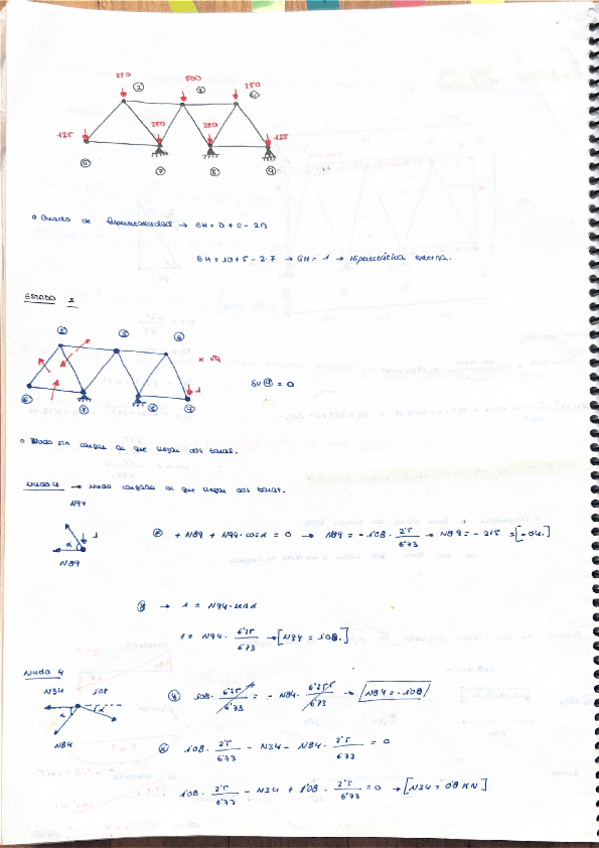 250 500 250
② ③ ④
125 250 250 125
⑥ ⑦ ⑧ ⑨
o Grado de hiperestaticidad → GH = b + c - 2n
GH = 10 + 5 - 2·7 → GH = 1 → Hiperestática externa.
ESTADO I
② ③ ④
x
1
δv⑨ = 0
⑥ ⑦ ⑧ ⑨
o Nudo sin cargas al que llegan dos barras.
→ Nudo cargado al que llegan dos barras.
N94
1
α
N89
ⓧ + N89 + N94·cosα = 0 → N89 = -1'08 · 2'5/6'73 →
ⓨ → 1 = N94·senα
1 = N94 · 6'25/6'73 → [N94 = 1'08.]
Nudo 4
N34 1'08
α α
N84
ⓨ 1'08 · 6'25/6'73 = - N84 · 6'25/6'73 → N84 = -1'08
ⓧ 1'08 · 2'5/6'73 - N34 - N84 · 2'5/6'73 = 0
1'08 · 2'5/6'73 - N34 + 1'08 · 2'5/6'73 = 0 → [N34 = 0'8 KN]